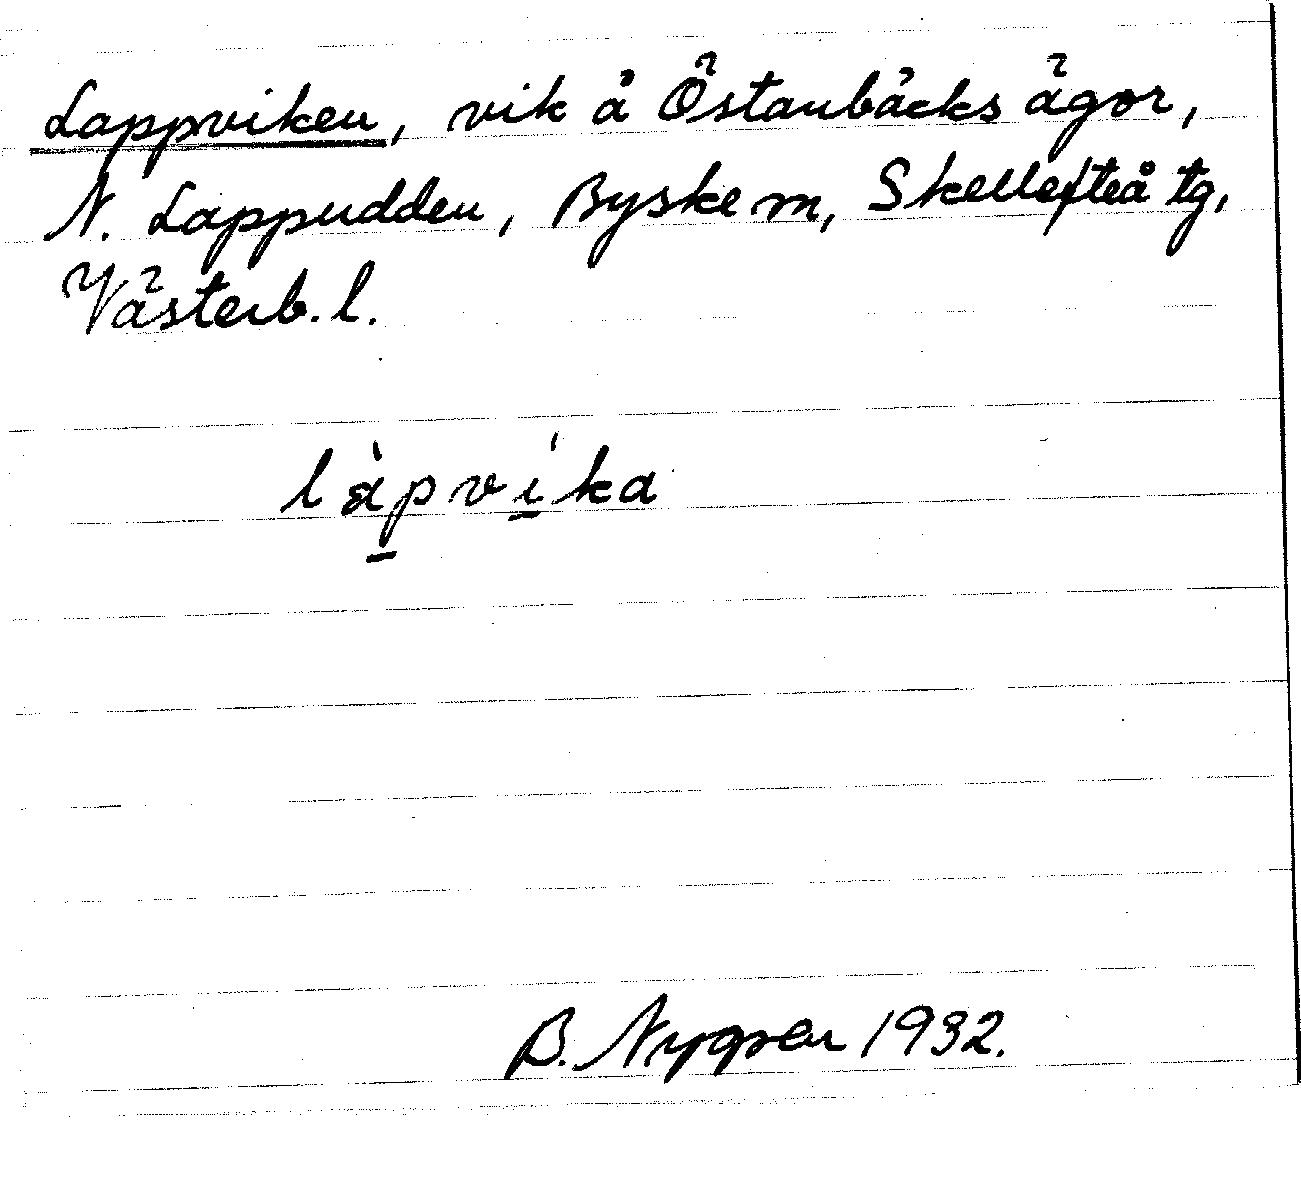 Lappviken, vik å Östanbäcks ägor,
N. Lappudden, Byske m, Skellefteå tg,
Västerb. l.
làpvíka
B. Nygren 1932.